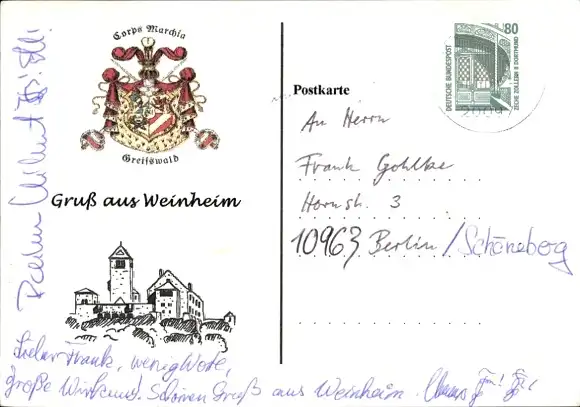 Corps Marchia
Greifswald
Gruß aus Weinheim
Postkarte
80
DEUTSCHE BUNDESPOST
ZECHE ZOLLERN II DORTMUND
An Herrn
Frank Gohlke
Hornstr. 3
10963 Berlin / Schöneberg
Lieber Frank, wenig Worte,
große Wirkung! Schönen Gruß aus Weinheim.